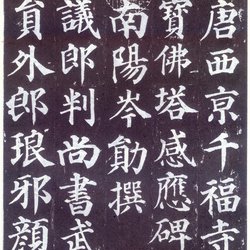 唐西京千福寺
寶佛塔感應碑
南陽岑勛撰
議郎判尚書武
員外郎琅邪顏